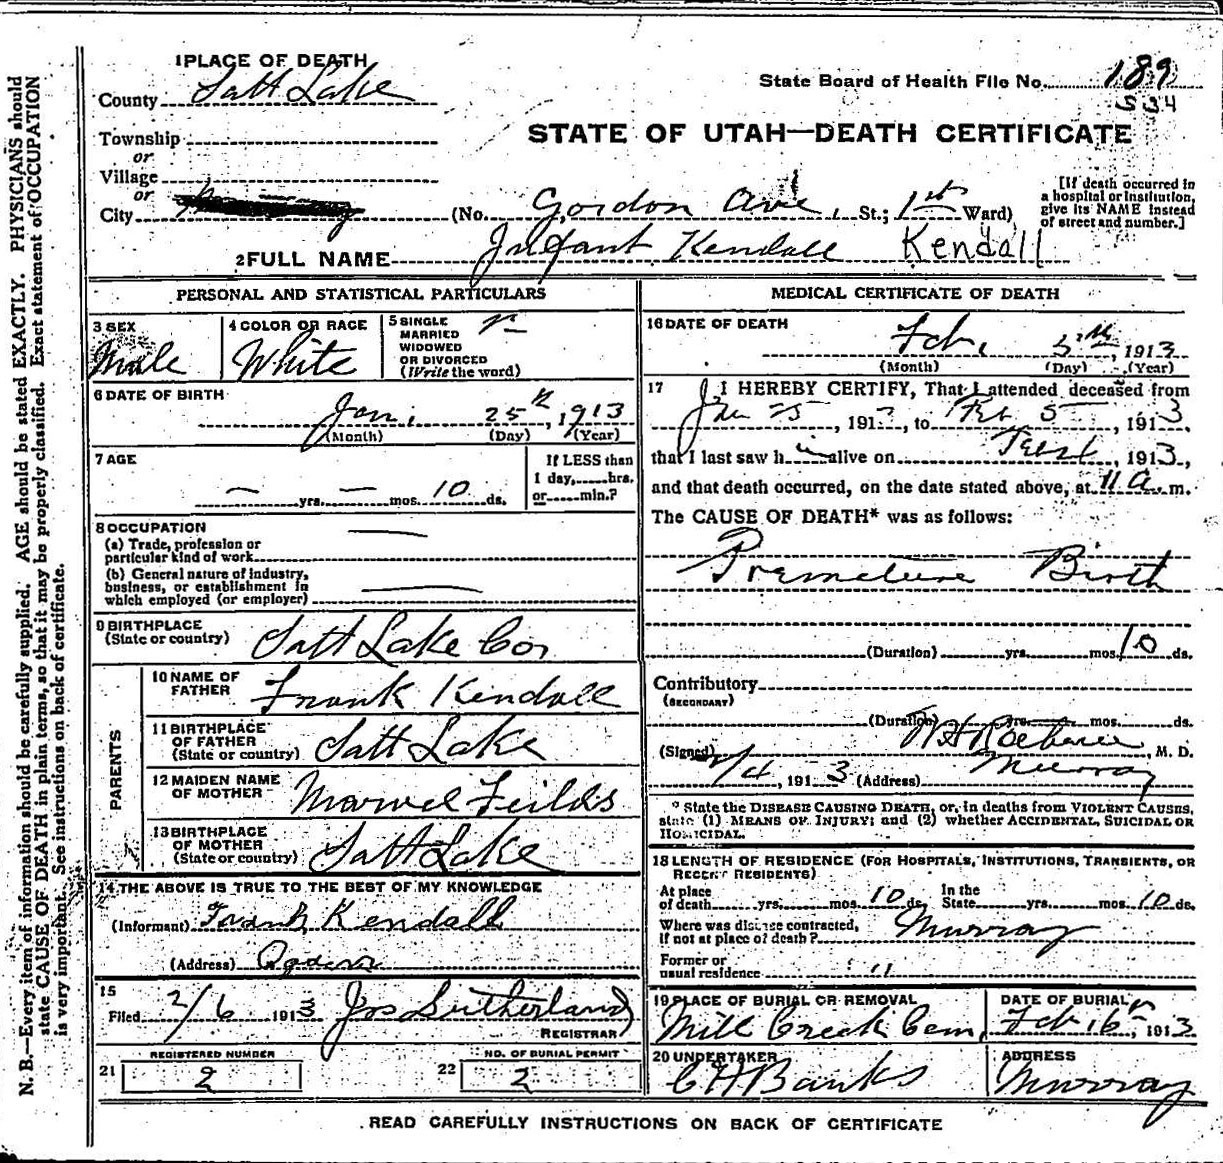 1 PLACE OF DEATH
County Salt Lake
State Board of Health File No. 189
S 34
STATE OF UTAH—DEATH CERTIFICATE
Township
or
Village
or
City
(No. Gordon Ave, St.; 1st Ward)
[If death occurred in a hospital or institution, give its NAME instead of street and number.]
2 FULL NAME Infant Kendall Kendall
PERSONAL AND STATISTICAL PARTICULARS
3 SEX Male
4 COLOR OR RACE White
5 SINGLE MARRIED WIDOWED OR DIVORCED (Write the word)
6 DATE OF BIRTH
Jan. 25th, 1913
(Month) (Day) (Year)
7 AGE
— yrs. — mos. 10 ds.
If LESS than 1 day, hrs. or min.?
8 OCCUPATION
(a) Trade, profession or particular kind of work
(b) General nature of industry, business, or establishment in which employed (or employer)
9 BIRTHPLACE (State or country) Salt Lake Co.
PARENTS
10 NAME OF FATHER Frank Kendall
11 BIRTHPLACE OF FATHER (State or country) Salt Lake
12 MAIDEN NAME OF MOTHER Marvel Feilds
13 BIRTHPLACE OF MOTHER (State or country) Salt Lake
14 THE ABOVE IS TRUE TO THE BEST OF MY KNOWLEDGE
(Informant) Frank Kendall
(Address)
15
Filed 2/6 1913 Jos Sutherland
REGISTRAR
REGISTERED NUMBER
21 2
NO. OF BURIAL PERMIT
22 2
MEDICAL CERTIFICATE OF DEATH
16 DATE OF DEATH
Feb. 5th, 1913
(Month) (Day) (Year)
17 I HEREBY CERTIFY, That I attended deceased from
Jan 25, 1913, to Feb 5, 1913,
that I last saw h i alive on , 1913,
and that death occurred, on the date stated above, at 11 a. m.
The CAUSE OF DEATH* was as follows:
Premeture Birth
(Duration) yrs. mos. 10 ds.
Contributory
(SECONDARY)
(Duration) yrs. mos. ds.
(Signed) M. D.
2/4, 1913 (Address) Murray
* State the DISEASE CAUSING DEATH, or, in deaths from VIOLENT CAUSES, state (1) MEANS OF INJURY; and (2) whether ACCIDENTAL, SUICIDAL OR HOMICIDAL.
18 LENGTH OF RESIDENCE (FOR HOSPITALS, INSTITUTIONS, TRANSIENTS, OR RECENT RESIDENTS)
At place of death yrs. mos. 10 ds. In the State yrs. mos. 10 ds.
Where was disease contracted, if not at place of death? Murray
Former or usual residence "
19 PLACE OF BURIAL OR REMOVAL
Mill Creek Cem.
DATE OF BURIAL
Feb 6th, 1913
20 UNDERTAKER
C H Banks
ADDRESS
Murray
READ CAREFULLY INSTRUCTIONS ON BACK OF CERTIFICATE
N. B.—Every item of information should be carefully supplied. AGE should be stated EXACTLY. PHYSICIANS should
state CAUSE OF DEATH in plain terms, so that it may be properly classified. Exact statement of OCCUPATION
is very important. See instructions on back of certificate.